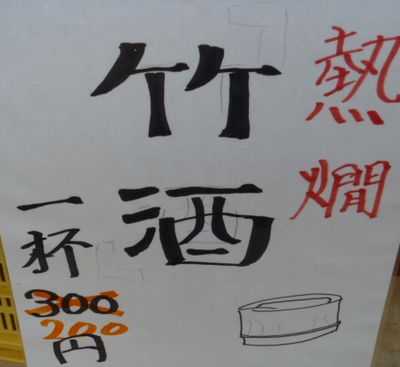 熱燗
竹酒
一杯
300
200
円